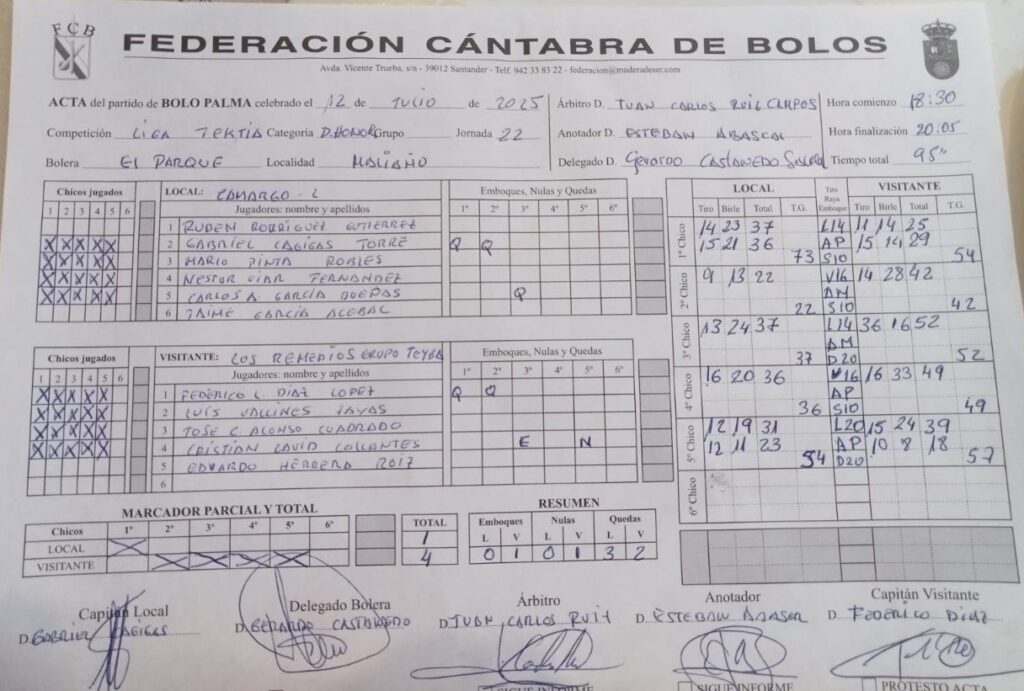 FCB
FEDERACIÓN CÁNTABRA DE BOLOS
Avda. Vicente Trueba, s/n - 39012 Santander - Telf. 942 33 83 22 - federacion@maderadeser.com
ACTA del partido de BOLO PALMA celebrado el 12 de JULIO de 2025
Competición LIGA TERTIA Categoría D.HONOR Grupo Jornada 22
Bolera El PARQUE Localidad MALIAÑO
Árbitro D. JUAN CARLOS RUIZ CAMPOS
Anotador D. ESTEBAN ABASCAL
Delegado D. Gerardo CASTANEDO
Hora comienzo 18:30
Hora finalización 20:05
Tiempo total 95"
Chicos jugados LOCAL: CAMARGO-L Emboques, Nulas y Quedas
1 2 3 4 5 6 Jugadores: nombre y apellidos 1º 2º 3º 4º 5º 6º
1 RUBEN RODRIGUEZ GUTIERREZ
X X X X X 2 GABRIEL CAGIGAS TORRE Q Q
X X X X X 3 MARIO PINTA ROBLES
X X X X X 4 NESTOR VIAR FERNANDEZ
X X X X X 5 CARLOS A. GARCÍA DUEÑAS Q
6 JAIME GARCÍA ACEBAL
Chicos jugados VISITANTE: LOS REMEDIOS GRUPO TEYBA Emboques, Nulas y Quedas
1 2 3 4 5 6 Jugadores: nombre y apellidos 1º 2º 3º 4º 5º 6º
X X X X X 1 FEDERICO L DIAZ LOPEZ Q Q
X X X X X 2 LUIS VALLINES
X X X X X 3 JOSE C. ALONSO CUADRADO
X X X X X 4 CRISTIAN DAVID COLLANTES E N
5 EDUARDO HERRERA ROIZ
6
LOCAL Tiro Raya Emboque VISITANTE
Tiro Birle Total T.G. Tiro Birle Total T.G.
1º Chico 14 23 37 L14 11 14 25
15 21 36 AP 15 14 29
73 S10 54
2º Chico 9 13 22 V16 14 28 42
AM
22 S10 42
3º Chico 13 24 37 L14 36 16 52
AM
37 D20 52
4º Chico 16 20 36 V16 16 33 49
AP
36 S10 49
5º Chico 12 19 31 L20 15 24 39
12 11 23 AP 10 8 18
54 D20 57
6º Chico
MARCADOR PARCIAL Y TOTAL
Chicos 1º 2º 3º 4º 5º 6º TOTAL
LOCAL X 1
VISITANTE X X X X 4
RESUMEN
Emboques Nulas Quedas
L V L V L V
0 1 0 1 3 2
Capitán Local Delegado Bolera Árbitro Anotador Capitán Visitante
D. GABRIEL CAGIGAS D. GERARDO CASTANEDO D. JUAN CARLOS RUIZ D. ESTEBAN ABASCAL D. FEDERICO DIAZ
SIGUE INFORME SIGUE INFORME PROTESTO ACTA